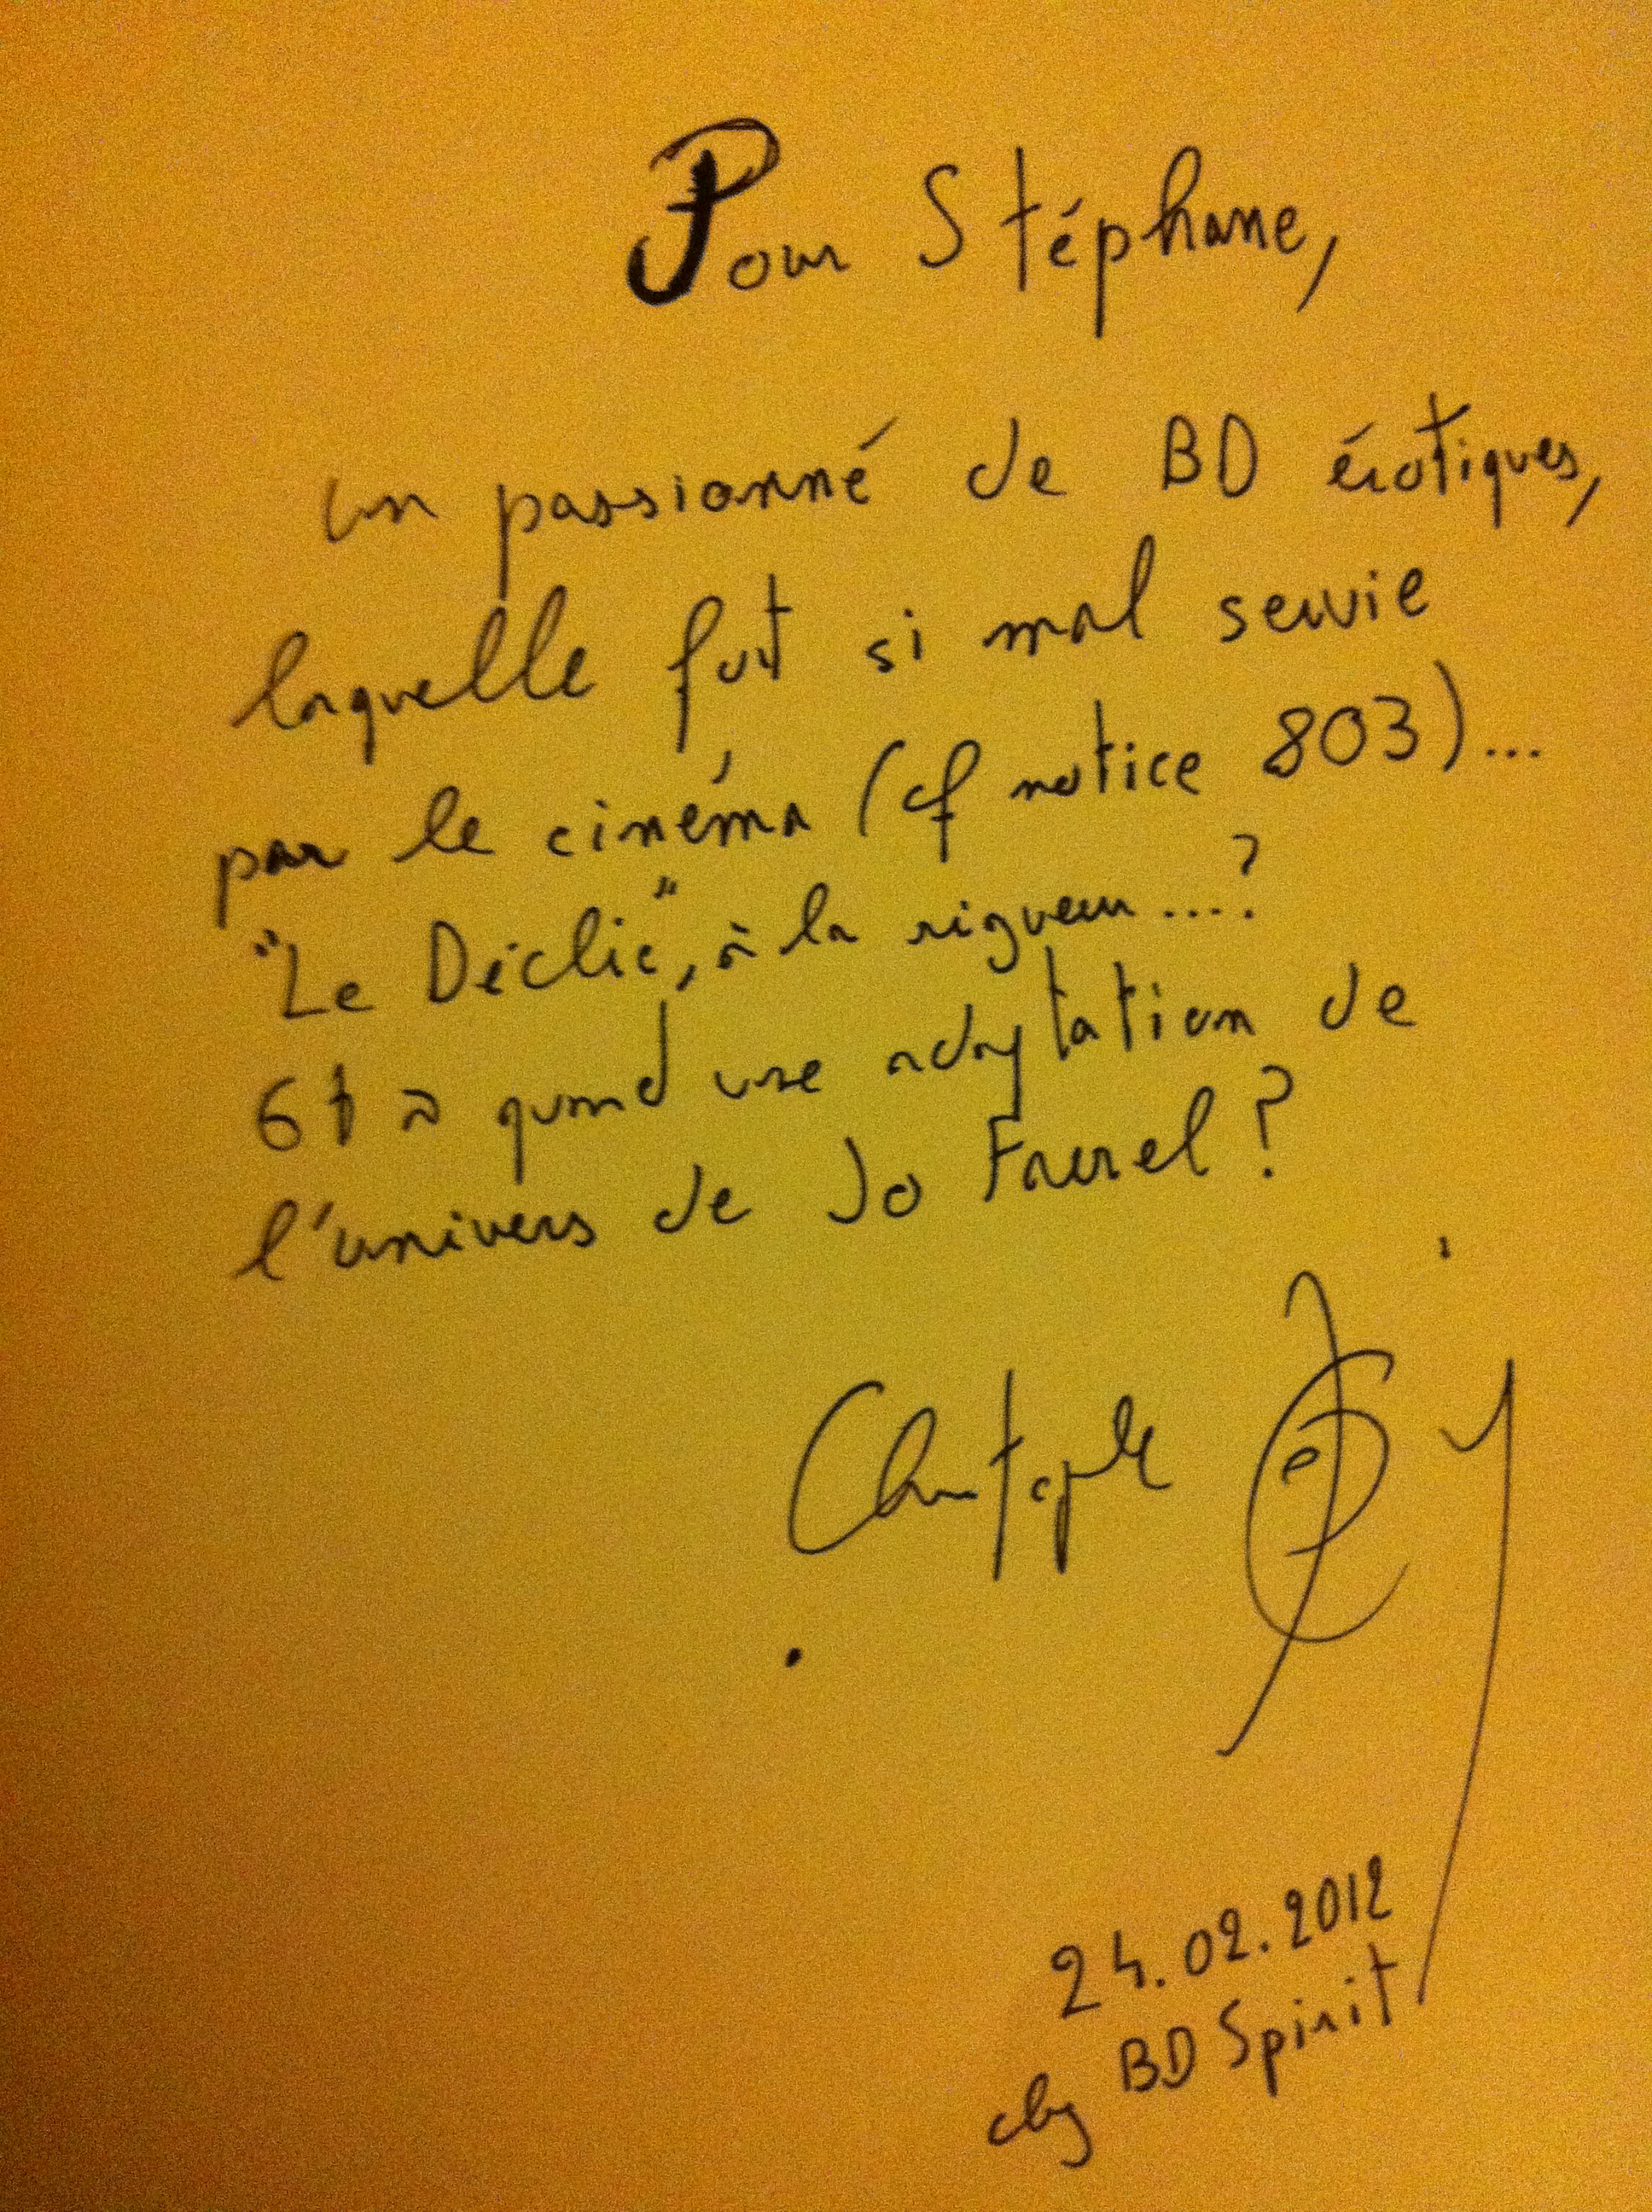 Pour Stéphane,
un passionné de BD érotiques,
laquelle fut si mal servie
par le cinéma (cf notice 803)...
"Le Déclic", à la rigueur....?
Et à quand une adaptation de
l'univers de Jo Farrel ?
Christophe
24.02.2012
chez BD Spirit